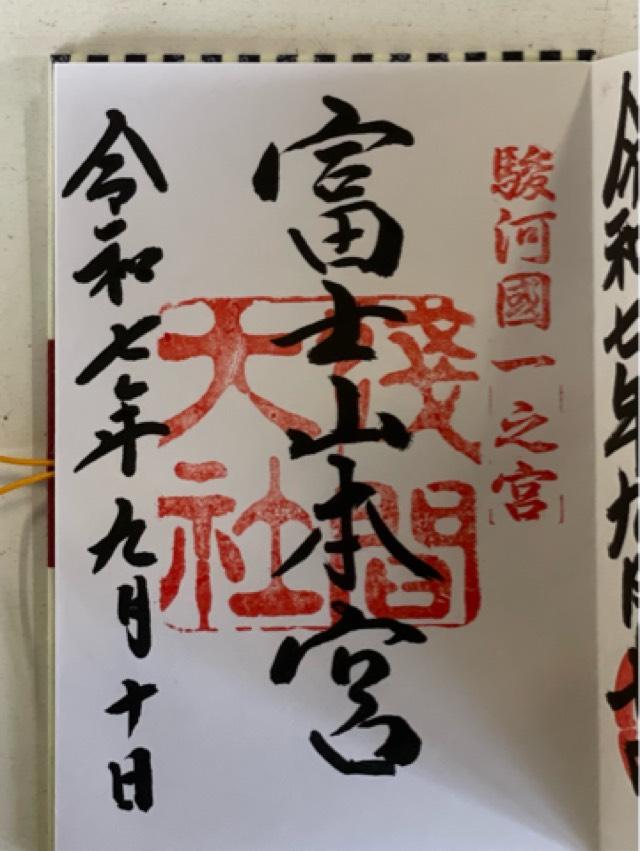 令和七年九月
駿河國一之宮
富士山本宮
淺間大社
令和七年九月十日